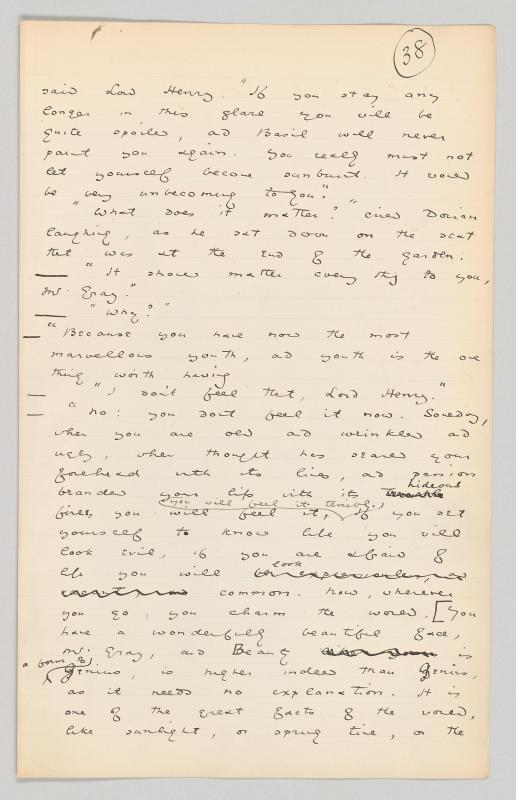 38
said Lord Henry. "If you stay any
longer in this glare you will be
quite spoiled, and Basil will never
paint you again. You really must not
let yourself become sunburnt. It would
be very unbecoming to you."
"What does it matter?" cried Dorian
laughing, as he sat down on the seat
that was at the end of the garden.
"It should matter everything to you,
Mr. Gray."
"Why?"
"Because you have now the most
marvellous youth, and youth is the one
thing worth having."
"I don't feel that, Lord Henry."
"No: you don't feel it now. Someday,
when you are old and wrinkled and
ugly, when thought has seared your
forehead with its lines, and passion
branded your lips with its hideous
fires, you will feel it, you will feel it terribly. If you set
yourself to know life you will
look evil, if you are afraid of
life you will look
common. Now, wherever
you go, you charm the world. [You
have a wonderfully beautiful face,
Mr. Gray, and Beauty is
a form of Genius, is higher indeed than Genius,
as it needs no explanation. It is
one of the great facts of the world,
like sunlight, or spring time, or the